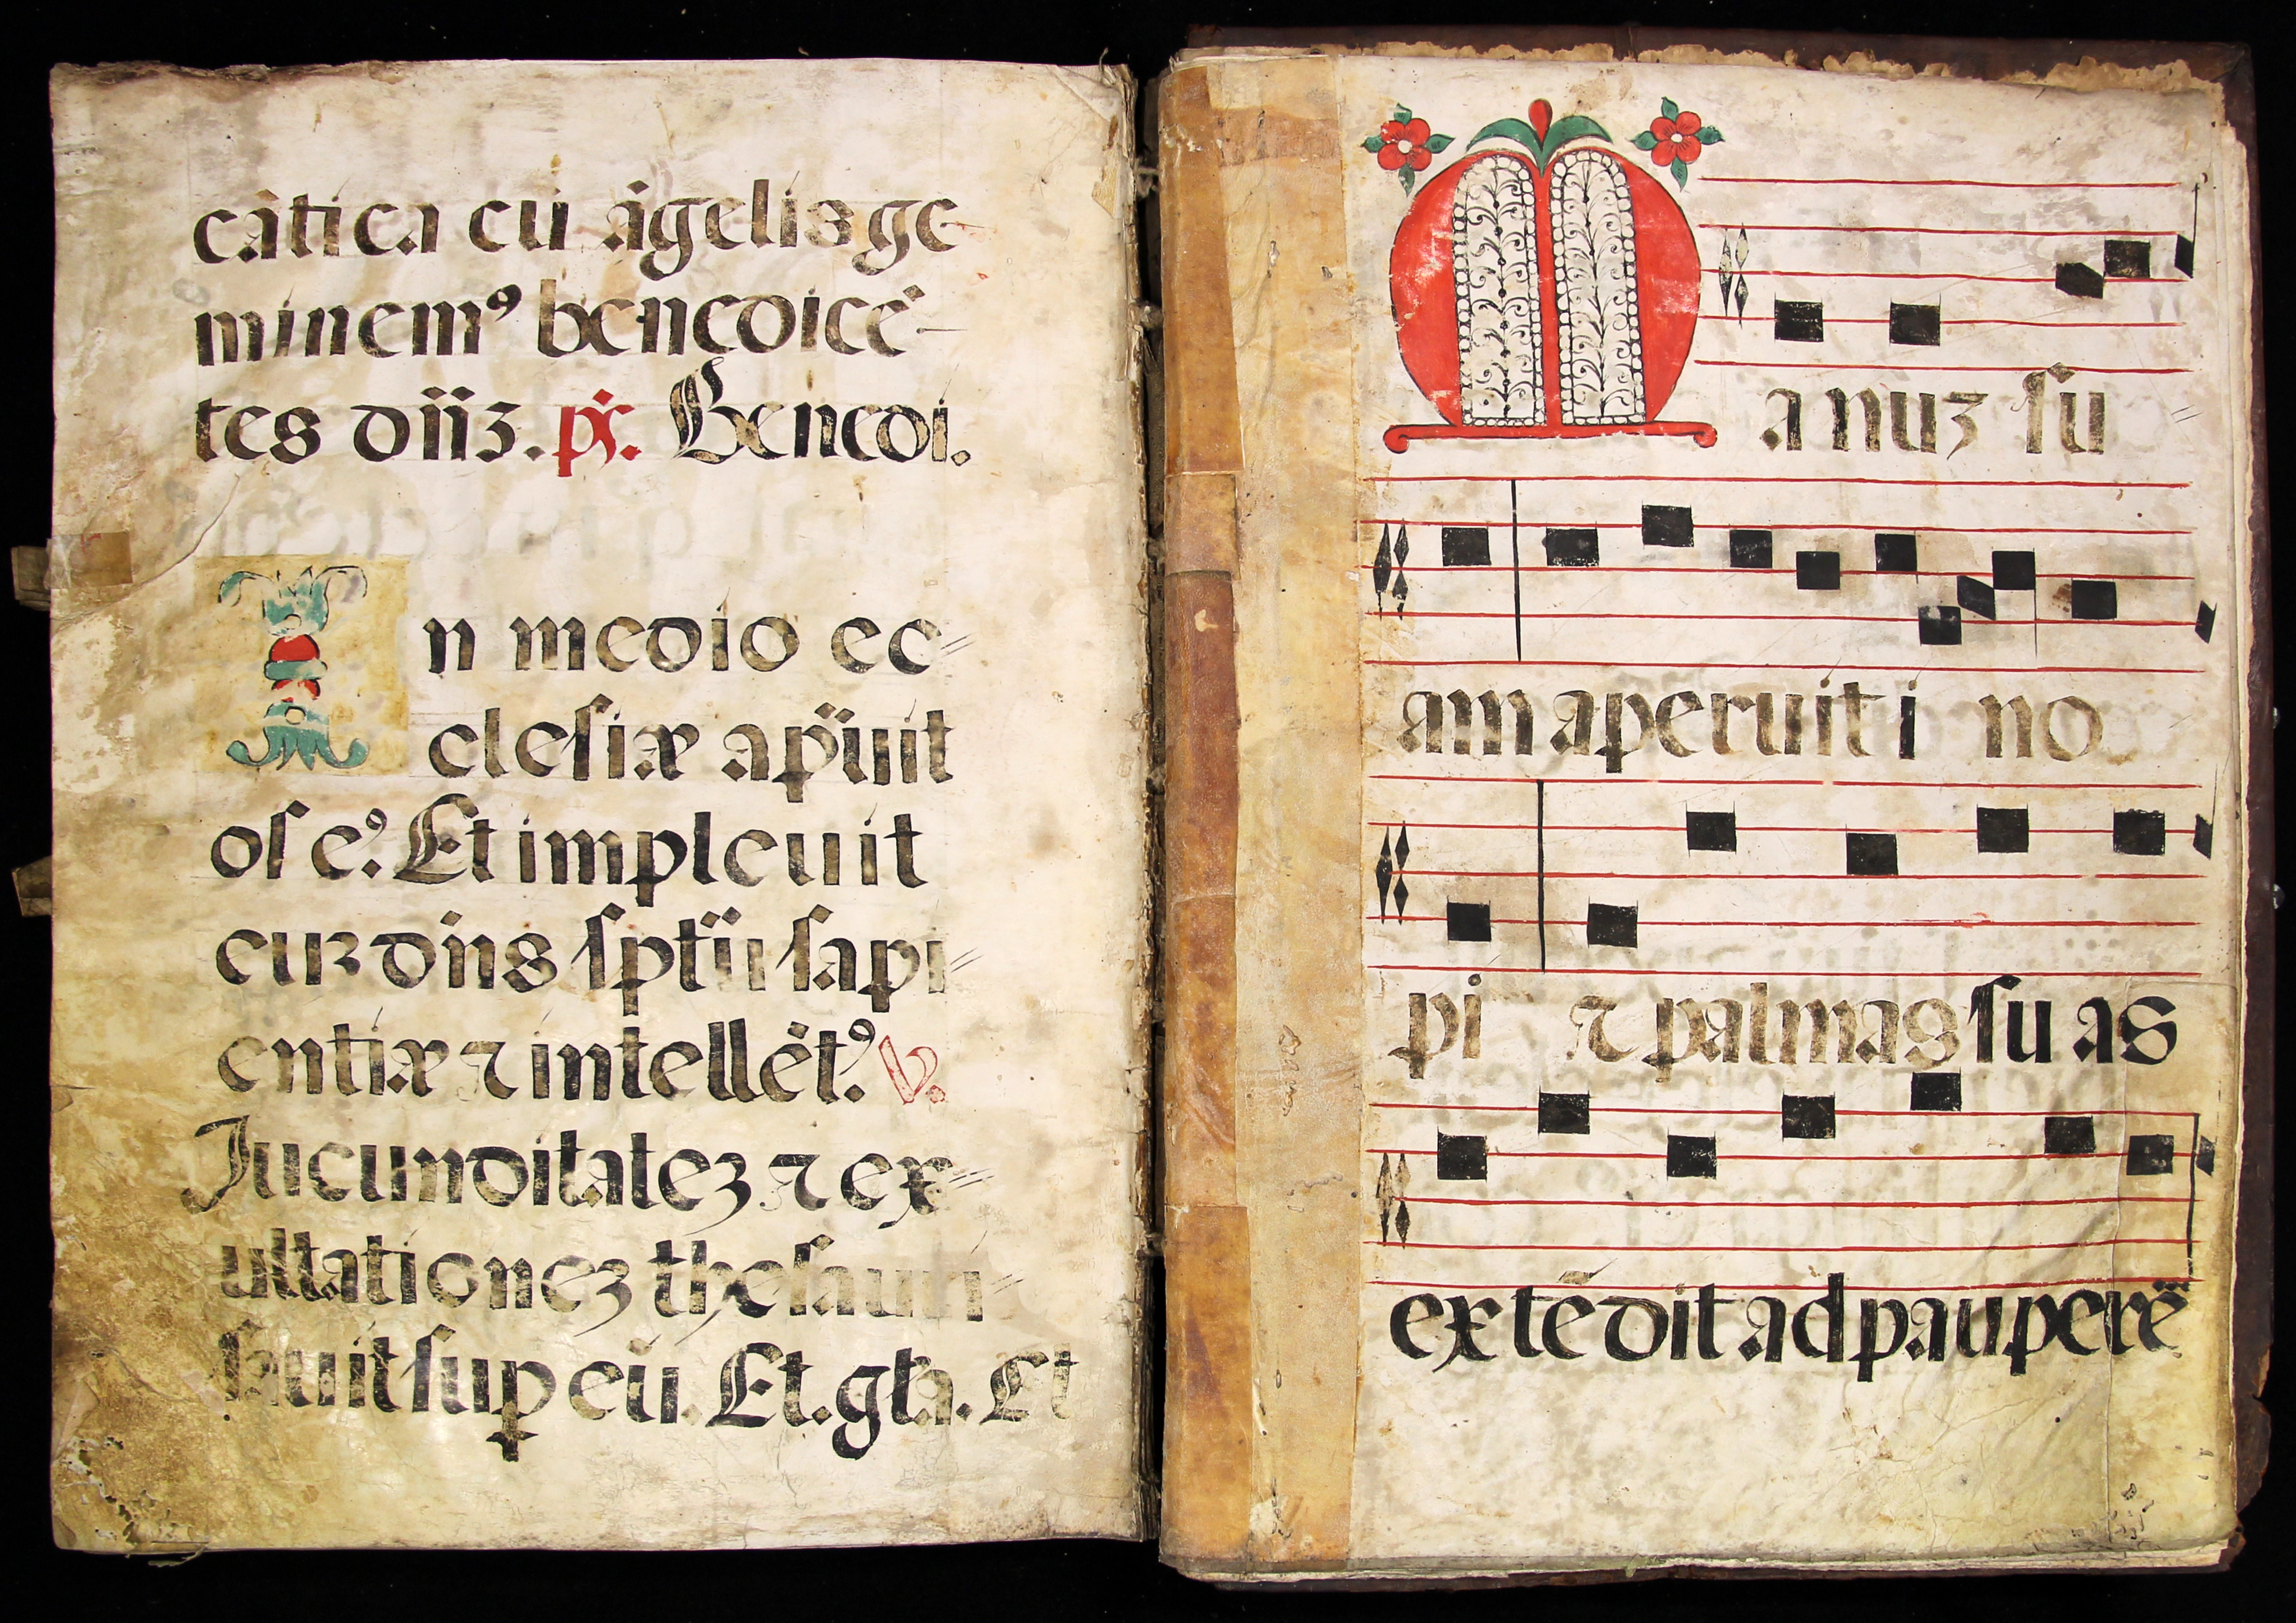 cãtica cũ ãgelis ge
minemꝰ benedicẽ-
tes dñȝ. ps. Benedi.
In medio ec-
clesiæ apuit
os eꝰ. Et impleuit
euȝ dñs spũ sapi-
entiæ ⁊ intellẽtꝰ. V.
Iucunditateȝ ⁊ ex-
ultationeȝ thesauri-
sauit sup eũ. Et. gľa. Et
Manuȝ su-
am aperuit i no-
pi ⁊ palmas suas
extẽdit ad pauperẽ